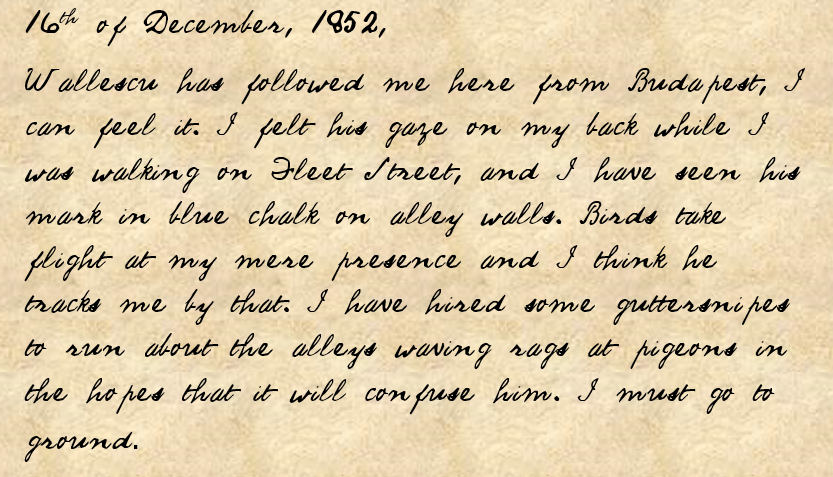 16th of December, 1852,
Wallescu has followed me here from Budapest, I
can feel it. I felt his gaze on my back while I
was walking on Fleet Street, and I have seen his
mark in blue chalk on alley walls. Birds take
flight at my mere presence and I think he
tracks me by that. I have hired some guttersnipes
to run about the alleys waving rags at pigeons in
the hopes that it will confuse him. I must go to
ground.